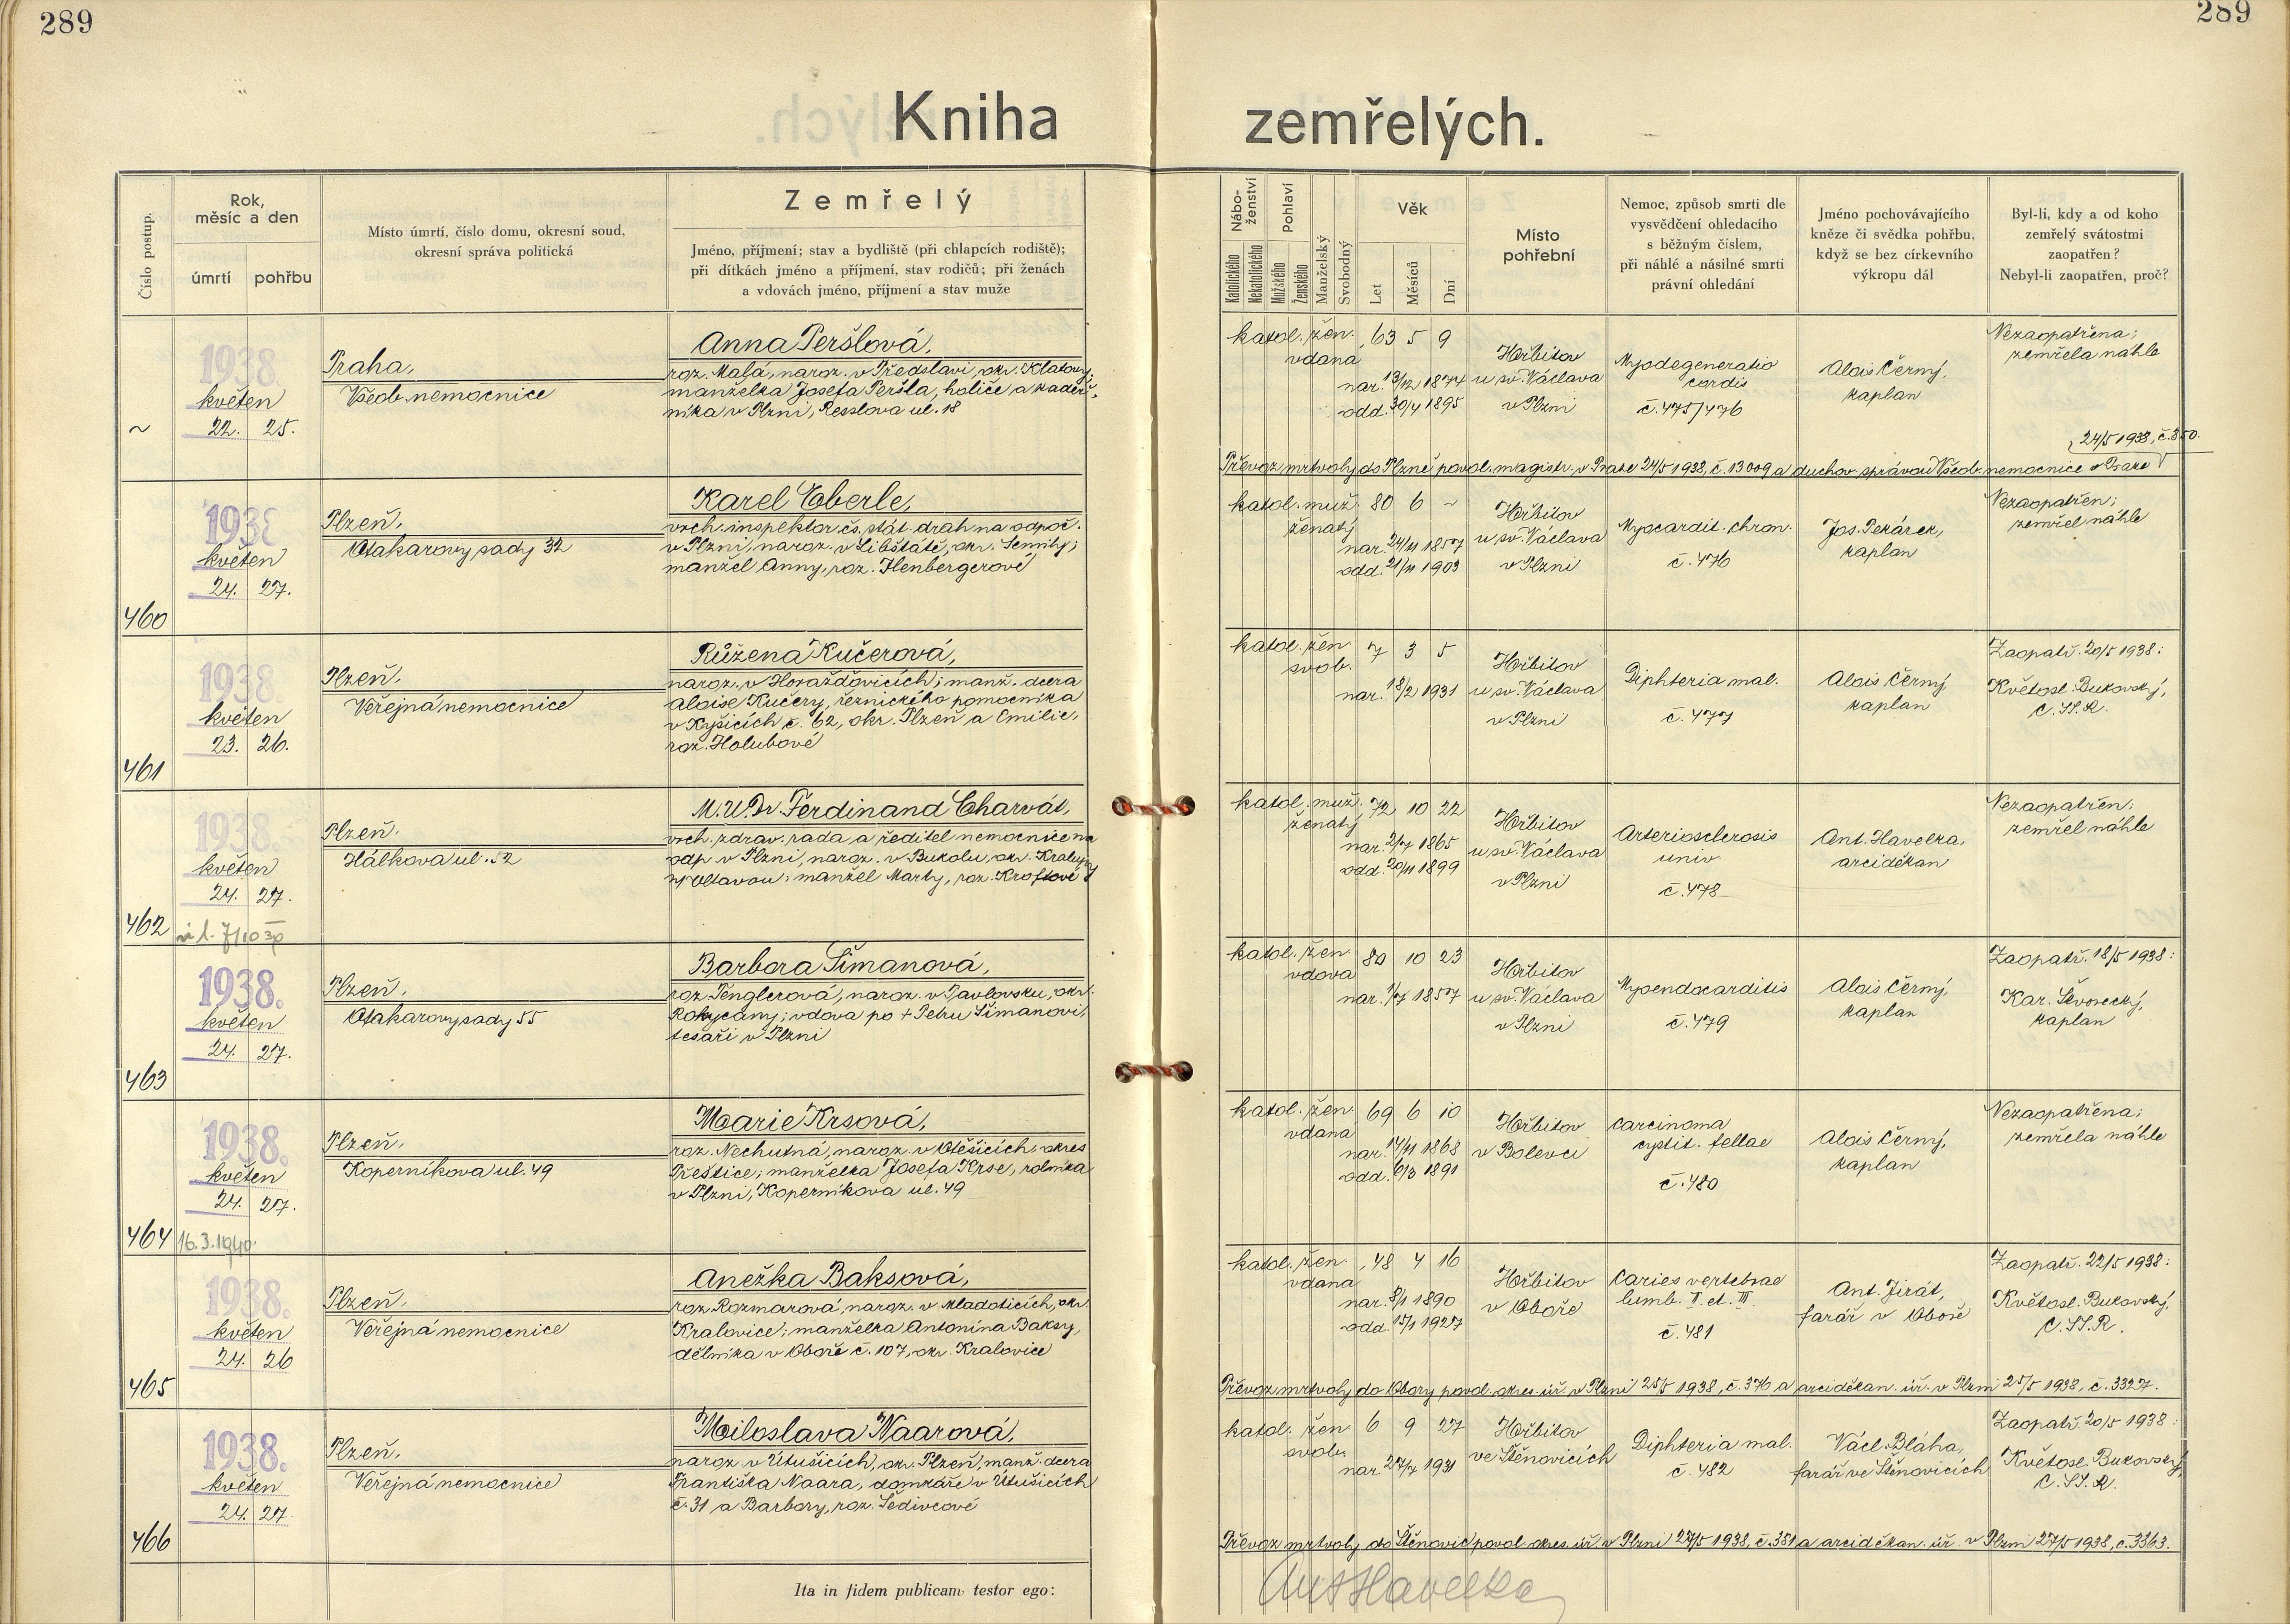 289
289
Kniha
zemřelých.
Číslo postup.
Rok,
měsíc a den
úmrtí
pohřbu
Místo úmrtí, číslo domu, okresní soud,
okresní správa politická
Zemřelý
Jméno, příjmení; stav a bydliště (při chlapcích rodiště);
při dítkách jméno a příjmení, stav rodičů; při ženách
a vdovách jméno, příjmení a stav muže
Nábo-
ženství
Katolického
Nekatolického
Pohlaví
Mužského
Ženského
Manželský
Svobodný
Věk
Let
Měsíců
Dní
Místo
pohřební
Nemoc, způsob smrti dle
vysvědčení ohledacího
s běžným číslem,
při náhlé a násilné smrti
právní ohledání
Jméno pochovávajícího
kněze či svědka pohřbu,
když se bez církevního
výkropu dál
Byl-li, kdy a od koho
zemřelý svátostmi
zaopatřen?
Nebyl-li zaopatřen, proč?
~
1938
květen
22. 25.
Praha,
Všeob. nemocnice
Anna Peršlová,
roz. Malá, naroz. v Předslavi, okr. Klatovy;
manželka Josefa Peršla, holiče a kadeř-
níka v Plzni, Resslova ul. 18
katol. žen. 63 5 9
vdana
nar. 13/12 1874
odd. 30/4 1895
Hřbitov
u sv. Václava
v Plzni
Myodegeneratio
cordis
č. 475/476
Alois Černý,
kaplan
Nezaopatřena;
zemřela náhle
24/5 1938, č. 850.
Převoz mrtvoly do Plzně povol. magistr. v Praze 24/5 1938, č. 13009 a duchov. správou Všeob. nemocnice v Praze
460
1938
květen
24. 27.
Plzeň,
Otakarovy sady 32
Karel Eberle,
vrch. inspektor čs. stát. drah na odpoč.
v Plzni, naroz. v Libštátě, okr. Semily;
manžel Anny, roz. Henbergerové
katol. muž. 80 6 ~
ženatý
nar. 24/11 1857
odd. 21/11 1903
Hřbitov
u sv. Václava
v Plzni
Myocardit. chron.
č. 476
Jos. Pekárek,
kaplan
Nezaopatřen;
zemřel náhle
461
1938
květen
23. 26.
Plzeň,
Veřejná nemocnice
Růžena Kučerová,
naroz. v Horažďovicích; manž. dcera
Aloise Kučery, řeznického pomocníka
v Kyšicích č. 62, okr. Plzeň a Emilie,
roz. Holubové
katol. žen 7 3 5
svob.
nar. 18/2 1931
Hřbitov
u sv. Václava
v Plzni
Diphteria mal.
č. 477
Alois Černý,
kaplan
Zaopatř. 20/5 1938:
Květosl. Bukovský,
C.SS.R.
462
1938.
květen
24. 27.
Plzeň,
Hálkova ul. 52
M.U.Dr. Ferdinand Charvát,
vrch. zdrav. rada a ředitel nemocnice na
odp. v Plzni, naroz. v Bukolu, okr. Kralupy
n/Vltavou; manžel Marty, roz. Kroftové
katol. muž. 72 10 22
ženatý
nar. 2/7 1865
odd. 20/11 1899
Hřbitov
u sv. Václava
v Plzni
Arteriosclerosis
univ.
č. 478
Ant. Havelka,
arciděkan
Nezaopatřen;
zemřel náhle
463
1938.
květen
24. 27.
Plzeň,
Otakarovy sady 55
Barbora Šimanová,
roz. Penglerová, naroz. v Pavlovsku, okr.
Rokycany; vdova po + Petru Šimanovi,
tesaři v Plzni
katol. žen. 80 10 23
vdova
nar. 1/7 1857
Hřbitov
u sv. Václava
v Plzni
Myoendocarditis
č. 479
Alois Černý,
kaplan
Zaopatř. 18/5 1938:
Kar. Švorecký,
kaplan
464
1938.
květen
24. 27.
16.3.1940.
Plzeň,
Koperníkova ul. 49
Marie Krsová,
roz. Nechutná, naroz. v Otěšicích, okres
Přeštice; manželka Josefa Krse, rolníka
v Plzni, Koperníkova ul. 49
katol. žen. 69 6 10
vdana
nar. 14/11 1868
odd. 6/3 1891
Hřbitov
v Bolevci
Carcinoma
cystit. fellae
č. 480
Alois Černý,
kaplan
Nezaopatřena;
zemřela náhle
465
1938.
květen
24. 26
Plzeň,
Veřejná nemocnice
Anežka Baksová,
roz. Rozmarová, naroz. v Mladoticích, okr.
Kralovice; manželka Antonína Baksy,
dělníka v Oboře č. 107, okr. Kralovice
katol. žen 48 4 16
vdana
nar. 8/1 1890
odd. 15/1 1927
Hřbitov
v Oboře
Caries vertebrae
lumb. II. et. III.
č. 481
Ant. Jirát,
farář v Oboře
Zaopatř. 22/5 1938:
Květosl. Bukovský,
C.SS.R.
Převoz mrtvoly do Obory povol. okres. úř. v Plzni 25/5 1938, č. 376 a arciděkan. úř. v Plzni 25/5 1938, č. 3327.
466
1938.
květen
24. 27.
Plzeň,
Veřejná nemocnice
Miloslava Naarová,
naroz. v Útušicích, okr. Plzeň, manž. dcera
Františka Naara, domkáře v Útušicích
č. 31 a Barbory, roz. Šedivcové
katol. žen 6 9 27
svob.
nar. 27/7 1931
Hřbitov
ve Štěnovicích
Diphteria mal.
č. 482
Václ. Bláha,
farář ve Štěnovicích
Zaopatř. 20/5 1938:
Květosl. Bukovský,
C.SS.R.
Převoz mrtvoly do Štěnovic povol. okres. úř. v Plzni 27/5 1938, č. 381 a arciděkan. úř. v Plzni 27/5 1938, č. 3363.
Ita in fidem publicam testor ego:
Ant Havelka